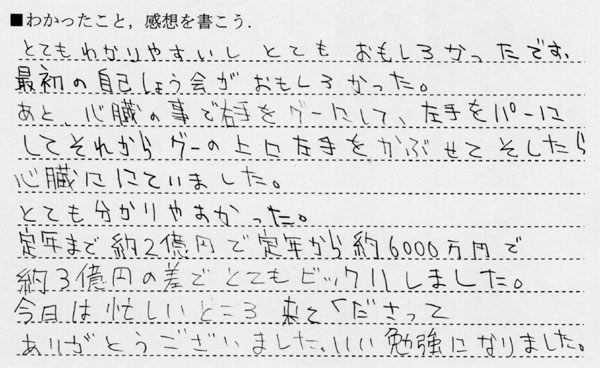 ■わかったこと，感想を書こう．
とてもわかりやすいし とても おもしろかったです.
最初の自己しょう会がおもしろかった。
あと、心臓の事で右手をグーにして、左手をパーに
してそれからグーの上に左手をかぶせてそしたら
心臓ににていました。
とても分かりやすかった。
定年まで約2億円で定年から約6000万円で
約3億円の差でとてもビックリしました。
今日は忙しいところ 来てくださって
ありがとうございました。いい勉強になりました。